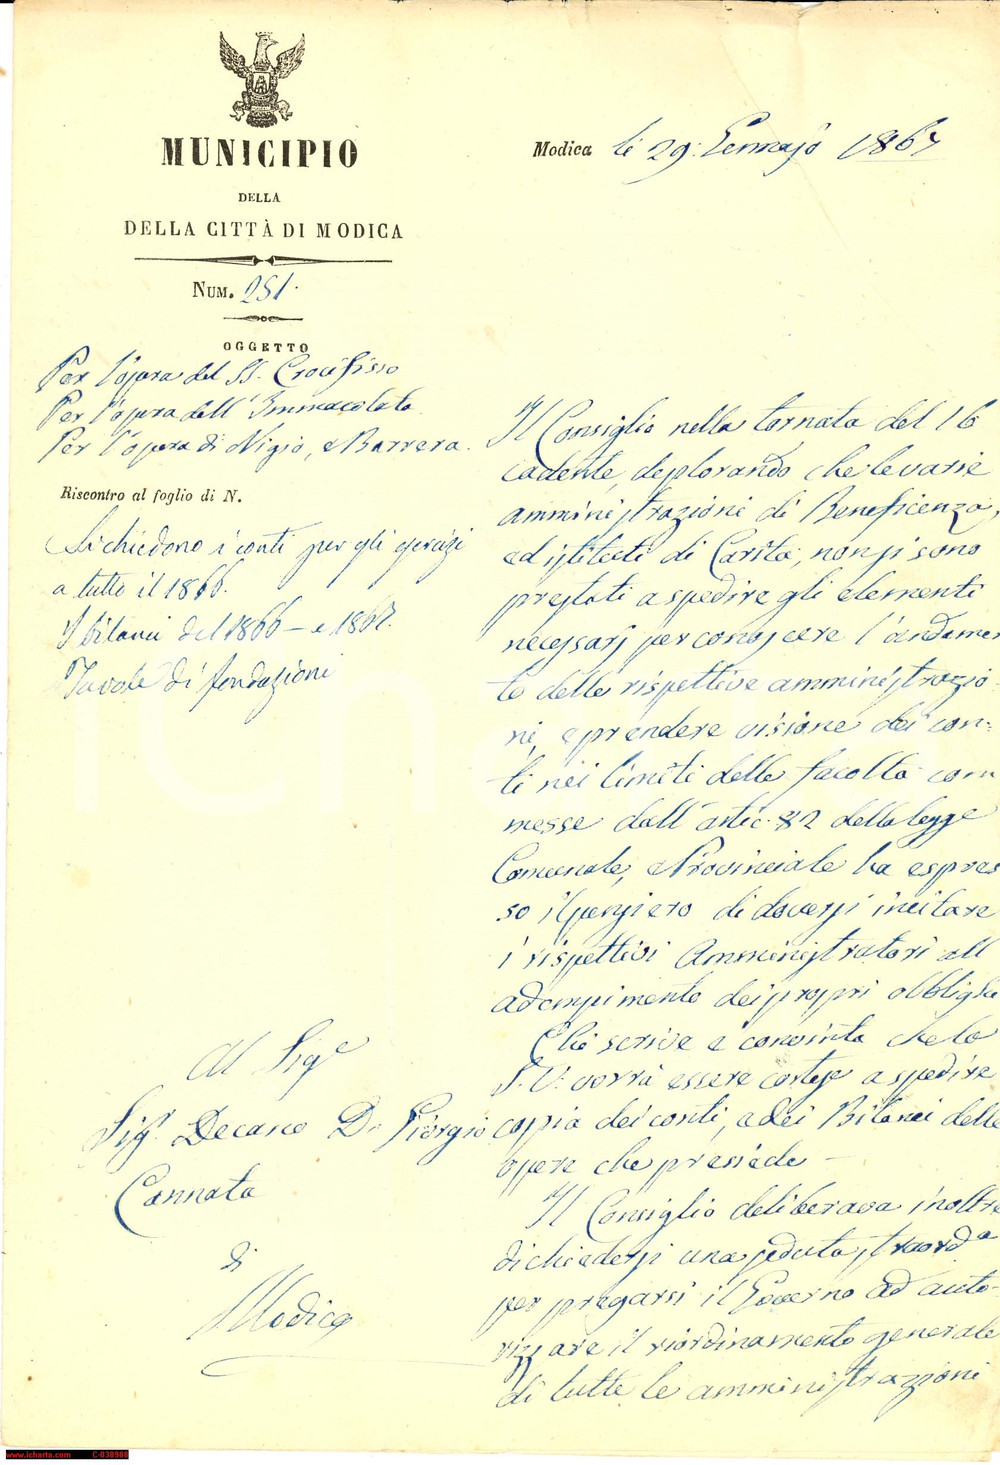 MUNICIPIO
DELLA
DELLA CITTÀ DI MODICA
Num. 251.
OGGETTO
Per l'opera del SS. Crocifisso
Per l'opera dell'Immacolata
Per l'opera di Nigio, e Barrera.
Riscontro al foglio di N.
Si chiedono i conti per gli esercizi
a tutto il 1866.
I bilanci del 1866 – e 1867.
Tavole di fondazioni
Al Sigr
Sigr. Decano Di Giorgio
Cannata
di
Modica
Modica li 29. Gennajo 1867
Il Consiglio nella tornata del 16
cadente, deplorando che le varie
amministrazioni di Beneficenza,
ed istituti di Carità, non si sono
prestati a spedire gli elementi
necessarj per conoscere l'andamen
to delle rispettive amministrazio-
ni, e prendere visione dei con-
ti nei limiti delle facoltà com
messe dall'artic. 82 della legge
Comunale, e Provinciale ha espres
so il pensiero di doversi incitare
i rispettivi Amministratori all
adempimento dei proprj obblighi
Chi scrive è convinto che la
S. V. vorrà essere cortese a spedire
copia dei conti, e dei Bilanci delle
opere che presiede –
Il Consiglio deliberava inoltre
di chiedersi una seduta straorda
per pregarsi il Governo ad auto-
rizzare il riordinamento generale
di tutte le amministrazioni
www.icharta.com C-038988